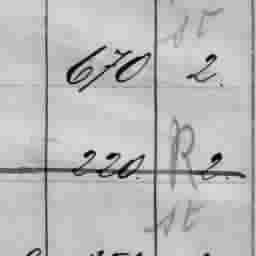 st
670 2.
220. R 2.
st